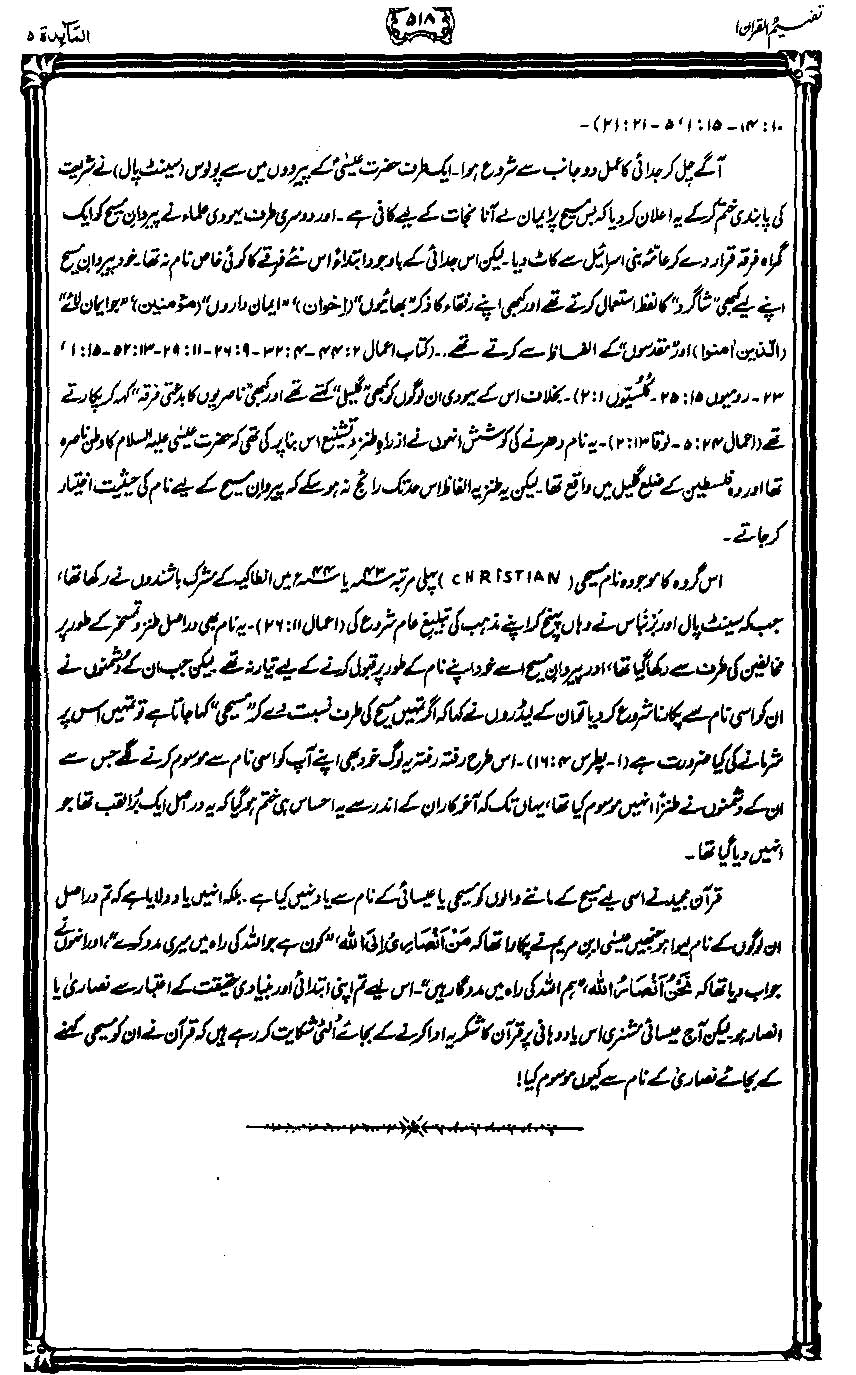 تفہیم القرآن ۱
۵۱۸
المآئدۃ ۵
۱۰ : ۱۴ - ۱۵ : ۱، ۵ - ۲۱ : ۲۱) -
آگے چل کر جدائی کا عمل دو جانب سے شروع ہوا۔ ایک طرف حضرت عیسٰیؑ کے پیرووں میں سے پولوس (سینٹ پال) نے شریعت
کی پابندی ختم کر کے یہ اعلان کر دیا کہ بس مسیح پر ایمان لے آنا نجات کے لیے کافی ہے۔ اور دوسری طرف یہودی علماء نے پیروانِ مسیح کو ایک
گمراہ فرقہ قرار دے کر عامۂ بنی اسرائیل سے کاٹ دیا۔ لیکن اس جدائی کے باوجود ابتداءً اس نئے فرقے کا کوئی خاص نام نہ تھا۔ خود پیروانِ مسیح
اپنے لیے کبھی ”شاگرد“ کا لفظ استعمال کرتے تھے اور کبھی اپنے رفقاء کا ذکر ”بھائیوں“ (اِخوان) ”ایمان داروں“ (مؤمنین)، ”جو ایمان لائے“
(الذین اٰمنوا) اور ”مقدسوں“ کے الفاظ سے کرتے تھے۔ (کتاب اعمال ۲ : ۴۴ - ۴ : ۳۲ - ۹ : ۲۶ - ۱۱ : ۲۹ - ۱۳ : ۵۲ - ۱۵ : ۱،
۲۳ - رومیوں ۱۵ : ۲۵ - کلسیوں ۱ : ۲)۔ بخلاف اس کے یہودی ان لوگوں کو کبھی ”گلیلی“ کہتے تھے اور کبھی ”ناصریوں کا بدعتی فرقہ“ کہہ کر پکارتے
تھے (اعمال ۲۴ : ۵ - لوقا ۱۳ : ۲)۔ یہ نام دھرنے کی کوشش انہوں نے از راہِ طنز و تشنیع اس بنا پر کی تھی کہ حضرت عیسیٰ علیہ السلام کا وطن ناصرہ
تھا اور وہ فلسطین کے ضلع گلیل میں واقع تھا۔ لیکن یہ طنزیہ الفاظ اس حد تک رائج نہ ہو سکے کہ پیروانِ مسیح کے لیے نام کی حیثیت اختیار
کر جاتے۔
اس گروہ کا موجودہ نام مسیحی (CHRISTIAN) پہلی مرتبہ ۴۳ء یا ۴۴ء میں انطاکیہ کے مشرک باشندوں نے رکھا تھا،
جب کہ سینٹ پال اور بُرنباس نے وہاں پہنچ کر اپنے مذہب کی تبلیغ عام شروع کی (اعمال ۱۱ : ۲۶)۔ یہ نام بھی دراصل طنز و تمسخر کے طور پر
مخالفین کی طرف سے رکھا گیا تھا، اور پیروانِ مسیح اسے خود اپنے نام کے طور پر قبول کرنے کے لیے تیار نہ تھے۔ لیکن جب ان کے دشمنوں نے
ان کو اسی نام سے پکارنا شروع کر دیا تو ان کے لیڈروں نے کہا کہ اگر تمہیں مسیح کی طرف نسبت دے کر ”مسیحی“ کہا جاتا ہے تو تمہیں اس پر
شرمانے کی کیا ضرورت ہے (۱ - پطرس ۴ : ۱۶)۔ اس طرح رفتہ رفتہ یہ لوگ خود بھی اپنے آپ کو اسی نام سے موسوم کرنے لگے جس سے
ان کے دشمنوں نے طنزاً انہیں موسوم کیا تھا، یہاں تک کہ آخر کار ان کے اندر سے یہ احساس ہی ختم ہو گیا کہ یہ دراصل ایک بُرا لقب تھا جو
انہیں دیا گیا تھا۔
قرآن مجید نے اسی لیے مسیح کے ماننے والوں کو مسیحی یا عیسائی کے نام سے یاد نہیں کیا ہے۔ بلکہ انہیں یاد دلایا ہے کہ تم دراصل
ان لوگوں کے نام لیوا ہو جنہیں عیسٰی ابن مریم نے پکارا تھا کہ مَنْ اَنْصَارِیْ اِلَی اللہِ، ”کون ہے جو اللہ کی راہ میں میری مدد کرے“، اور انہوں نے
جواب دیا تھا کہ نَحْنُ اَنْصَارُ اللہِ، ”ہم اللہ کی راہ میں مددگار ہیں“۔ اس لیے تم اپنی ابتدائی اور بنیادی حقیقت کے اعتبار سے نصاریٰ یا
انصار ہو۔ لیکن آج عیسائی مشنری اس یاددہانی پر قرآن کا شکریہ ادا کرنے کے بجائے اُلٹی شکایت کر رہے ہیں کہ قرآن نے ان کو مسیحی کہنے
کے بجائے نصاریٰ کے نام سے کیوں موسوم کیا!